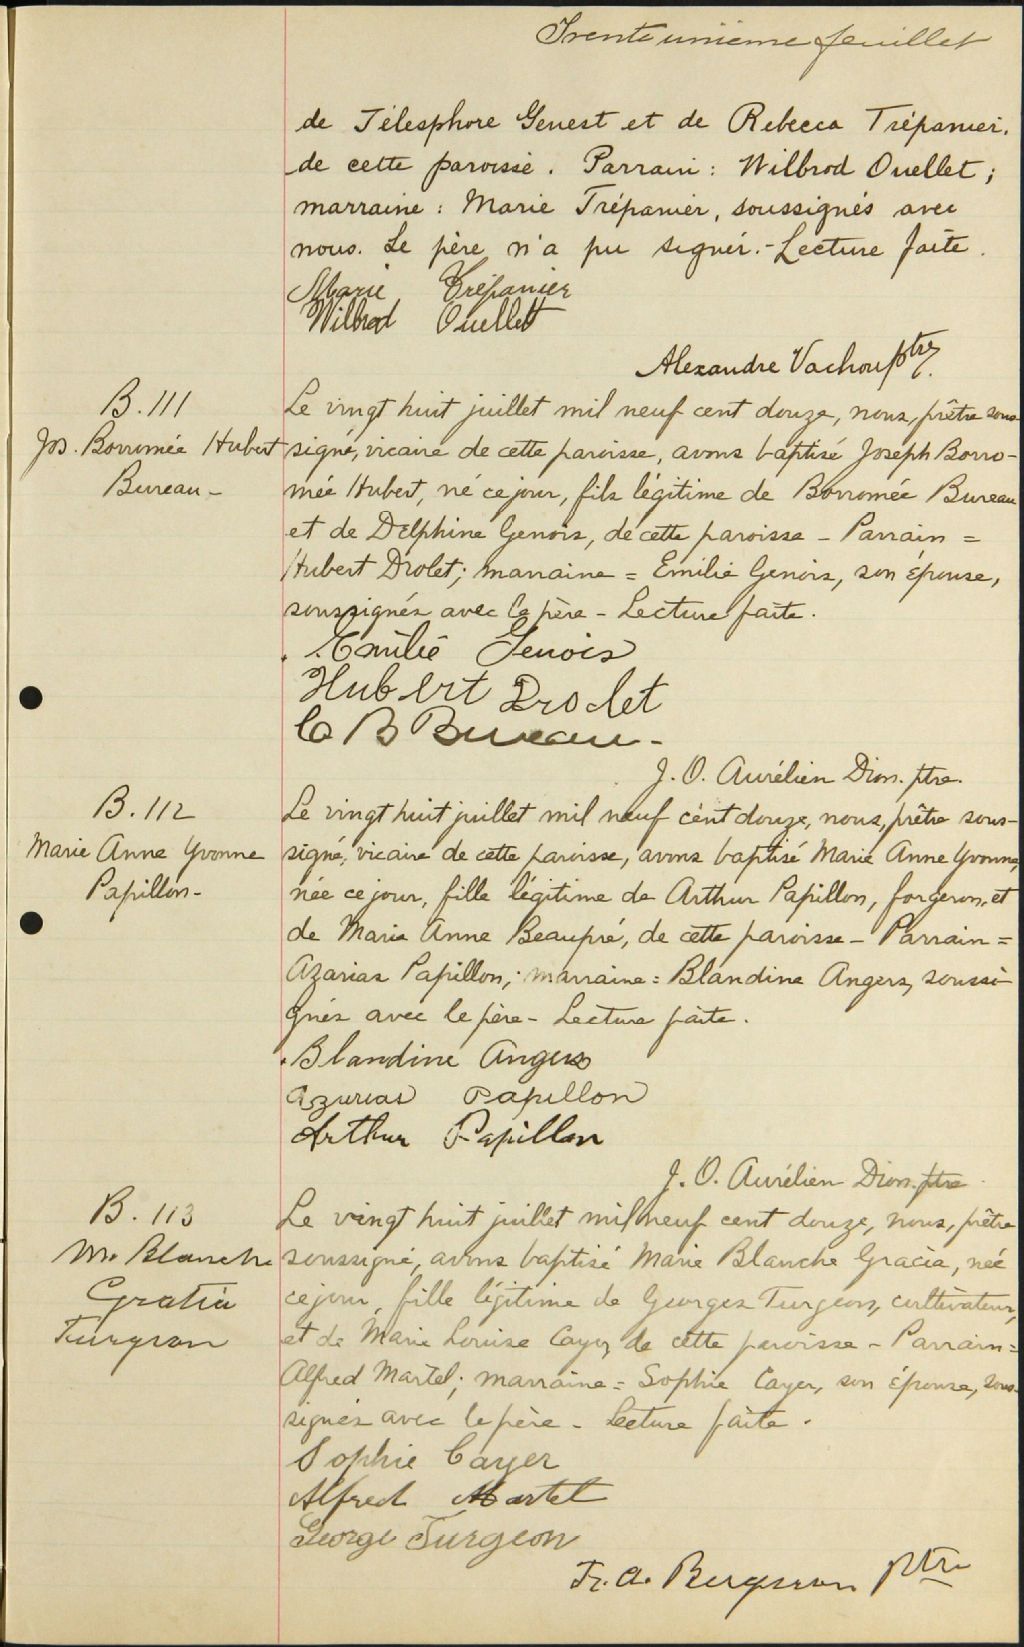 Trente unième feuillet
de Télesphore Genest et de Rebecca Trépanier,
de cette paroisse. Parrain : Wilbrod Ouellet ;
marraine : Marie Trépanier, soussignés avec
nous. Le père n'a pu signer.- Lecture faite.
Marie Trépanier
Wilbrod Ouellett
Alexandre Vachon ptre.
B. 111
Jos. Borromée Hubert
Bureau -
Le vingt huit juillet mil neuf cent douze, nous, prêtre sous-
signé, vicaire de cette paroisse, avons baptisé Joseph Borro-
mée Hubert, né ce jour, fils légitime de Borromée Bureau
et de Delphine Genois, de cette paroisse - Parrain =
Hubert Drolet; marraine = Emilie Genois, son épouse,
soussignés avec le père - Lecture faite.
Emilie Genois
Hubert Drolet
C B Bureau -
J. O. Aurélien Dion. ptre.
B. 112
Marie Anne Yvonne
Papillon -
Le vingt huit juillet mil neuf cent douze, nous, prêtre sous-
signé, vicaire de cette paroisse, avons baptisé Marie Anne Yvonne,
née ce jour, fille légitime de Arthur Papillon, forgeron, et
de Marie Anne Beaupré, de cette paroisse - Parrain =
Azarias Papillon; marraine = Blandine Angers, soussi-
gnés avec le père - Lecture faite.
Blandine Angers
Azarias Papillon
Arthur Papillon
J. O. Aurélien Dion. ptre
B. 113
M. Blanche
Gratia
Turgeon
Le vingt huit juillet mil neuf cent douze, nous, prêtre
soussigné, avons baptisé Marie Blanche Gracia, née
ce jour, fille légitime de Georges Turgeon, cultivateur,
et de Marie Louise Cayer, de cette paroisse - Parrain =
Alfred Martel; marraine = Sophie Cayer, son épouse, sous-
signés avec le père - Lecture faite.
Sophie Cayer
Alfred Martel
George Turgeon
F. A. Bergeron ptre